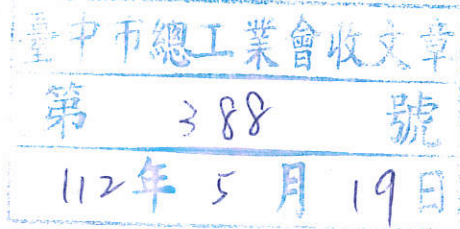 臺中市總工業會收文章
第 388 號
112年 5 月 19日